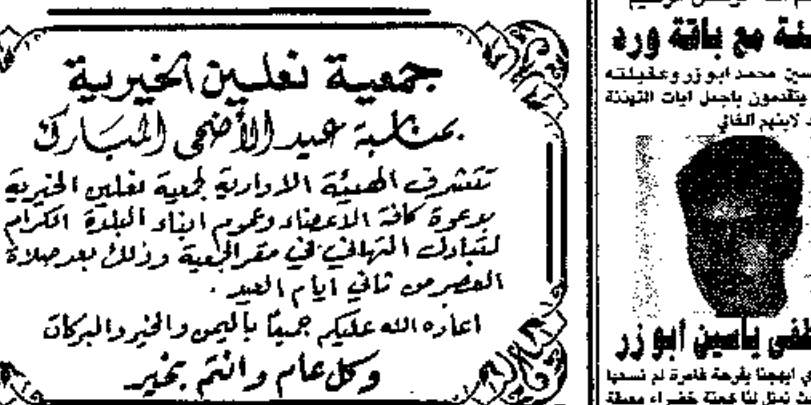 جمعية نعلين الخيرية
بمناسبة عيد الأضحى المبارك
تتشرف الهيئة الادارية لجمعية نعلين الخيرية
بدعوة كافة الاعضاء وعموم ابناء البلدة الكرام
لتبادل التهاني في مقر الجمعية وذلك بعد صلاة
العصر من ثاني ايام العيد .
اعاده الله عليكم جميعاً باليمن والخير والبركات
وكل عام وانتم بخير
مع باقة ورد
محمد ابو زر وعقيلته
يتقدمون باجمل ايات التهنئة
لابنهم الغالي
ياسين ابو زر
ابهجنا بفرحة غامرة لم نسعها
خضراء